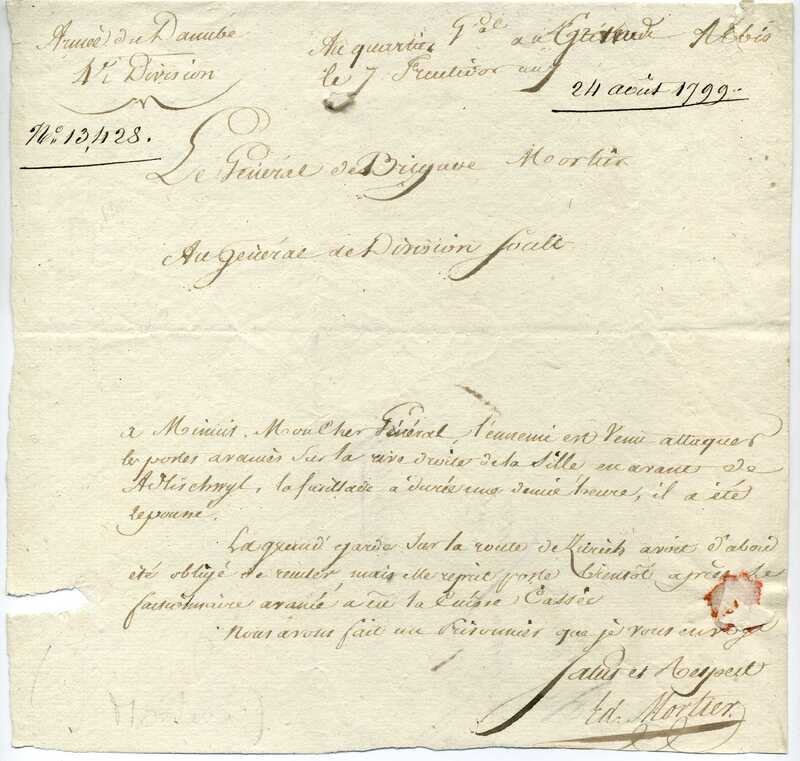 Armée du Danube
4e. Division
Au quartier Gal. a
le 7 Fructidor an 7
Albis
24 août 1799.
No. 13,428.
Le Général de Brigade Mortier
Au général de Division Soult
a Minuit, Mon Cher Général, l'ennemi est Venu attaquer
le postes avancés Sur la rive droite de la Sille en avant de
Adlischwyl, la fusillade a durée une demie heure, il a été
repoussé.
La grand' garde Sur la route de Zurich avoit d'abord
été obligé de rentrer, mais elle reprit poste bientôt après Le
factionnaire avancé a eu la Cuisse Cassée
Nous avons fait un Prisonnier que je vous envoye
Salut et Respect
Ed. Mortier.
Mortier